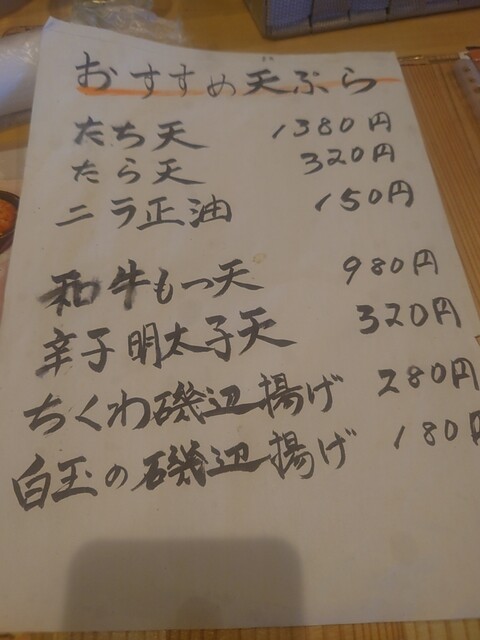 おすすめ天ぷら
たち天 1380円
たら天 320円
ニラ正油 150円
和牛もつ天 980円
辛子明太子天 320円
ちくわ磯辺揚げ 280円
白玉の磯辺揚げ 180円